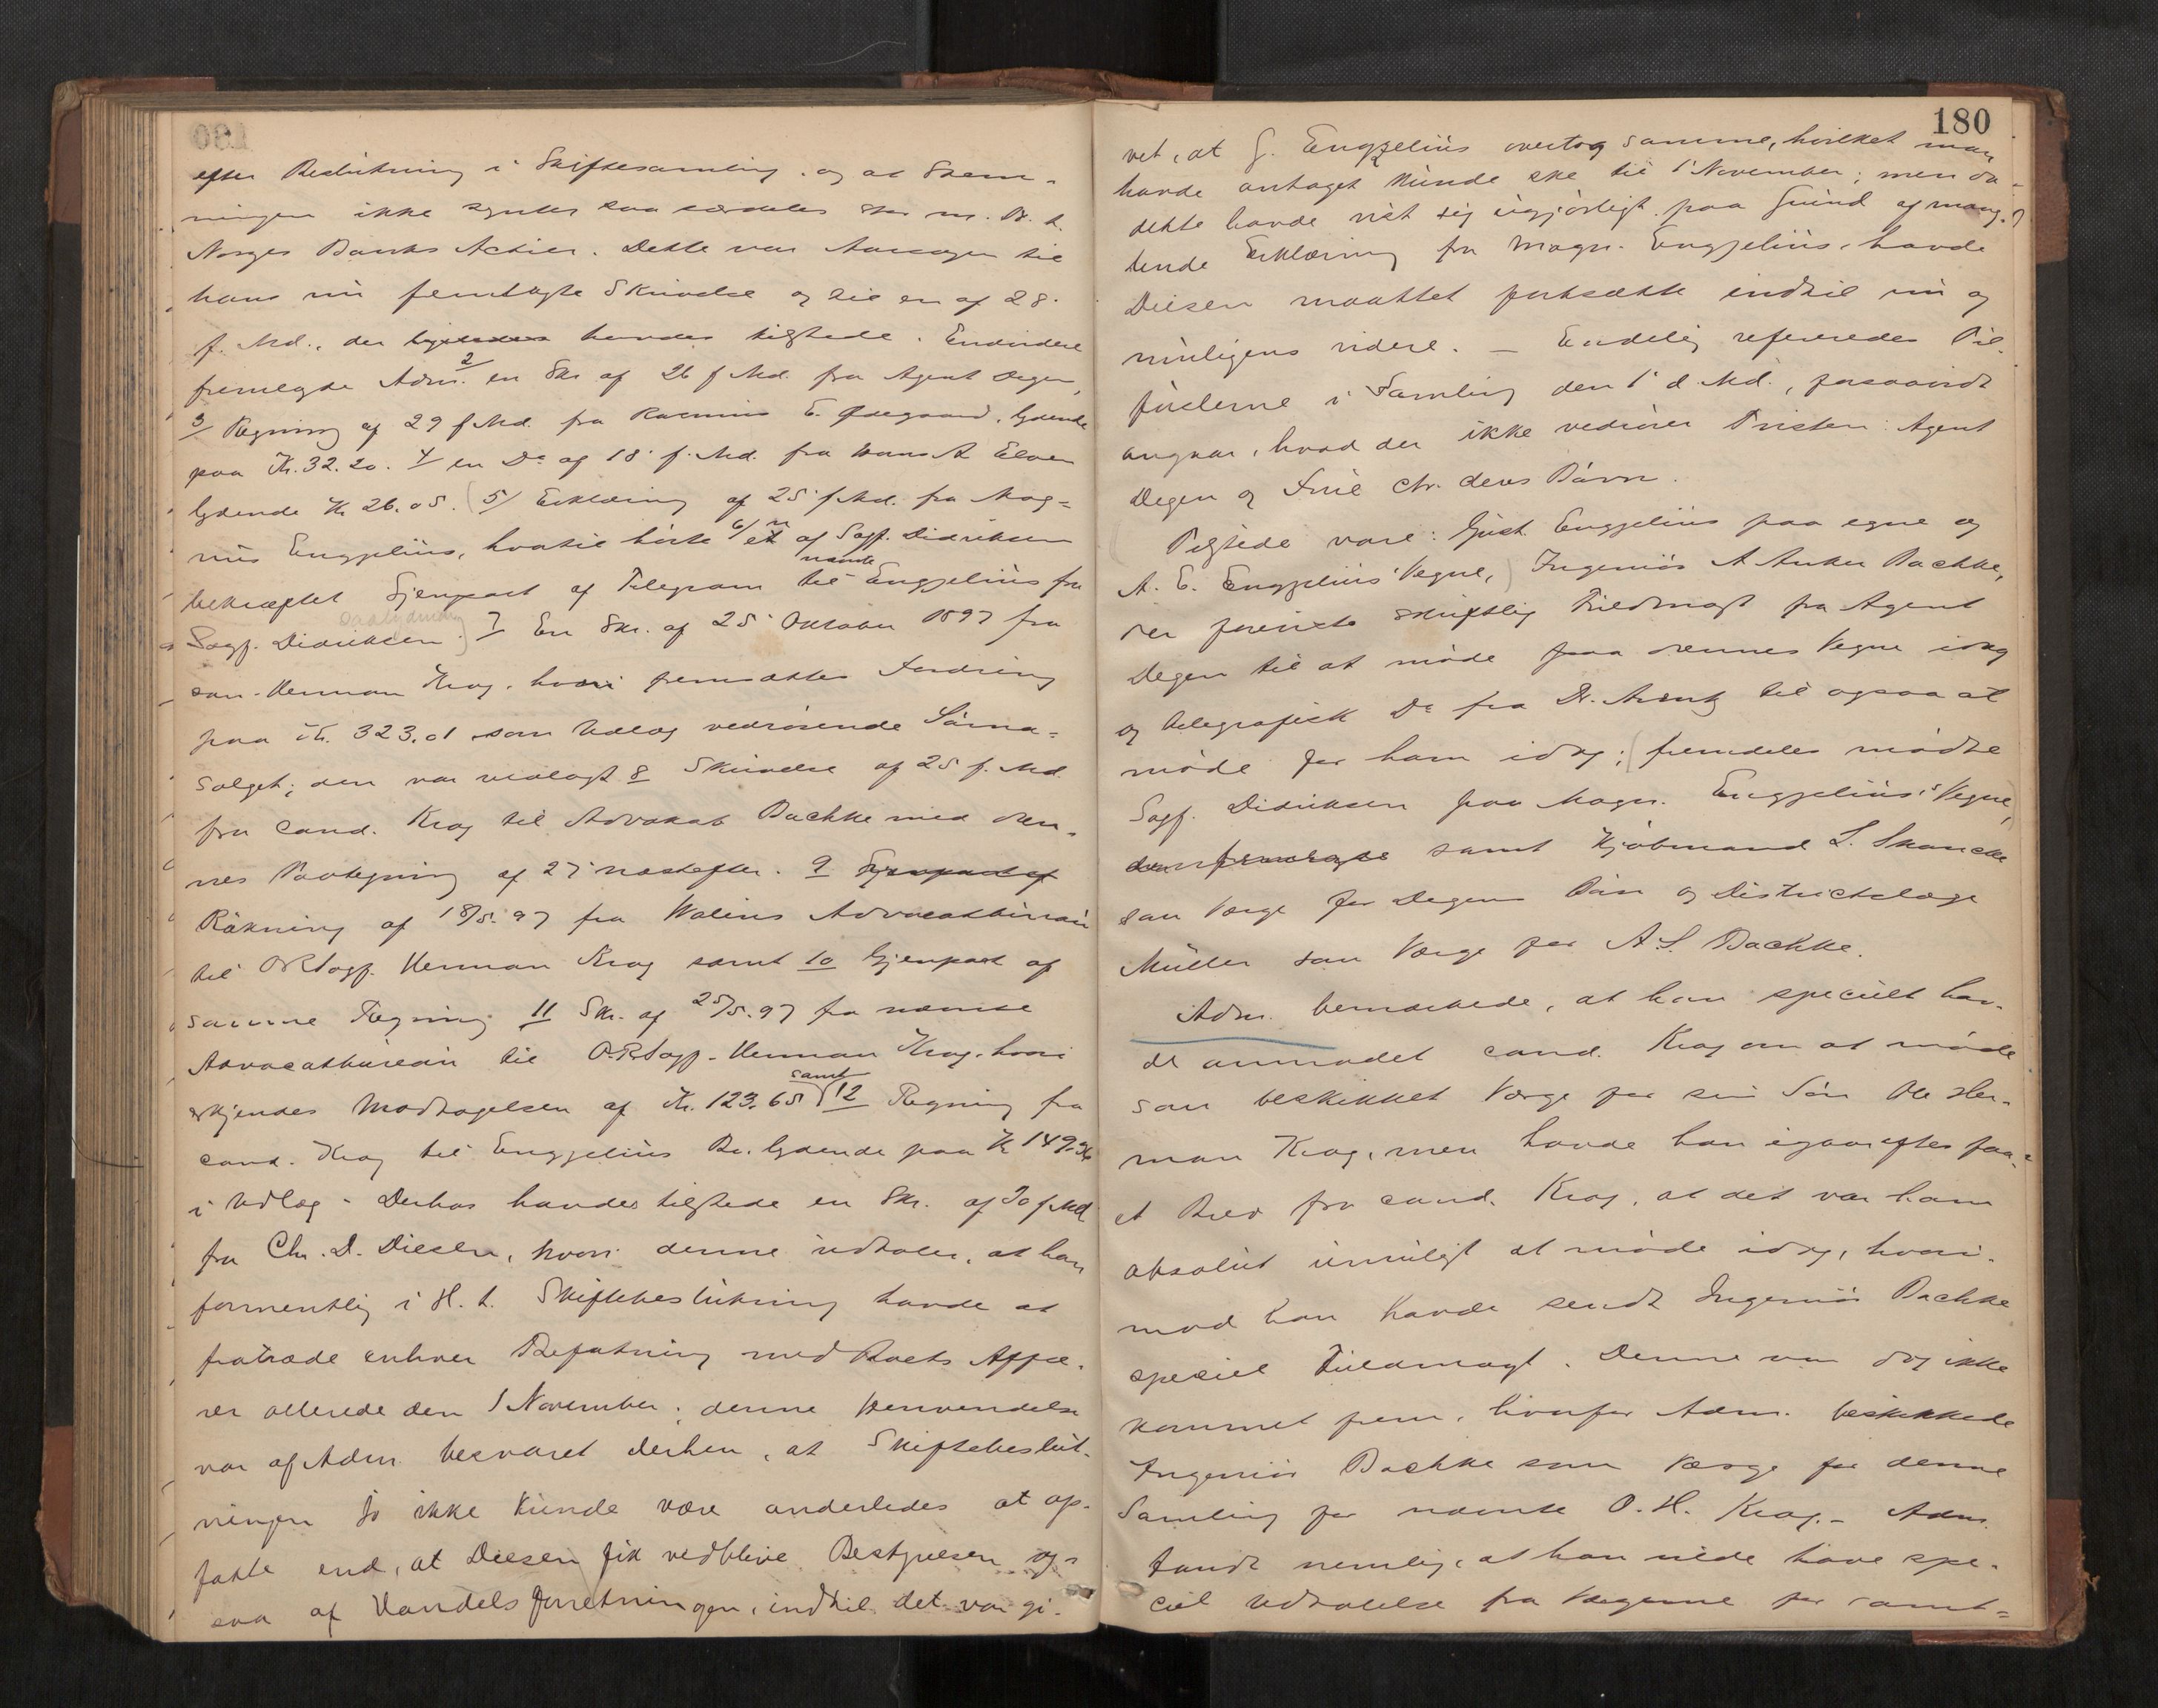 efter Beslutning i Skiftesamling og at Stem-
ningen ikke syntes saa særdeles stor m. H. t.
Norges Banks Actier. Dette var Aarsagen til
hans nu fremlagte Skrivelse og til en af 28.
f. Md., der havdes tilstede. Endvidere
fremlagde Adm. 2/ en Skr af 26 f Md. fra Agent Degen,
3/ Regning af 29 f Md. fra Rasmus E. Ødegaard, lydende
paa Kr. 32.20. 4/ en Do af 18' f. Md. fra Hans A Elven
lydende Kr 26.05. (5/ Erklæring af 25' f Md. fra Mag=
nus Engzelius, hvortil hørte 6/ en af Sagf. Didriksen
bekræftet Gjenpart af Telegram til nævnte Engzelius fra
Sagf. Didriksen) 7 En Skr. af 25' Oktober 1897 fra
can. Herman Krag, hvori fremsattes Fordring
paa Kr. 323.01 som Udlæg vedrørende Särna=
salget; den var vedlagt 8 Skrivelse af 25 f. Md.
fra cand. Krag til Advokat Bachke med den-
nes Paategning af 27' næstefter. 9 Gjenpart af
Räkning af 18/5. 97 fra Walins Advocatbureau
til ORSagf. Herman Krag samt 10 Gjenpart af
samme Regning 11 Skr. af 25/5. 97 fra nævnte
Advocatbureau til ORSagf. Herman Krag, hvori
erkjendes Modtagelsen af Kr. 123.65 samt 12 Regning fra
cand. Krag til Engzelius Bo. lydende paa Kr 149.36
i Udlæg - Derhos havdes tilstede en Skr. af 30 f Md
fra Chr. D. Diesen, hvori denne udtaler, at han
formentlig i H. t. Skiftebeslutning havde at
fratræde enhver Befatning med Boets Affæ-
rer allerede den 1 November; denne Henvendelse
var af Adm. besvaret derhen, at Skiftebeslut-
ningen jo ikke kunde være anderledes at op-
fatte end, at Diesen fik vedblive Bestyrelsen og-
saa af Handelsforretningen, indtil det var gi-
180
vet, at G. Engzelius overtog samme, hvilket man
havde antaget kunde ske til 1' November; men da
dette havde vist sig ugjørligt paa Grund af mang-
lende Erklæring fra Magn. Engzelius, havde
Diesen maattet fortsætte indtil nu og
muligens videre. - Endelig refereredes Til-
førslerne i Samling den 1' d. Md., forsaavidt
angaar, hvad der ikke vedrører Tvisten: Agent
Degen og Frue ctr. deres Børn.
Tilstede vare: Gust. Engzelius paa egne og
A. E. Engzelius' Vegne, Ingeniør A Anker Bachke,
der foreviste skriftlig Fuldmagt fra Agent
Degen til at møde paa dennes Vegne idag
og telegrafisk Do fra Dr. Arentz til ogsaa at
møde for ham idag; (fremdeles mødte
Sagf. Didriksen paa Magn. Engzelius's Vegne,)
samt Kjøbmand L. Skancke
som Værge for Degens Børn og Districtslæge
Müller som Værge for A. S. Bachke.
Adm. bemærkede, at han specielt hav-
de anmodet cand. Krag om at møde
som beskikket Værge for sin Søn Ole Her-
man Krag, men havde han igaaraftes faa-
et Brev fra cand. Krag, at det var ham
absolut umuligt at møde idag, hvori-
mod han havde sendt Ingeniør Bachke
speciel Fuldmagt. Denne var dog ikke
kommet frem, hvorfor Adm. beskikkede
Ingeniør Bachke som Værge for denne
Samling for nævnte O. H. Krag. - Adm.
fandt nemlig, at han vilde have spe-
ciel Udtalelse fra Værgerne for samt=